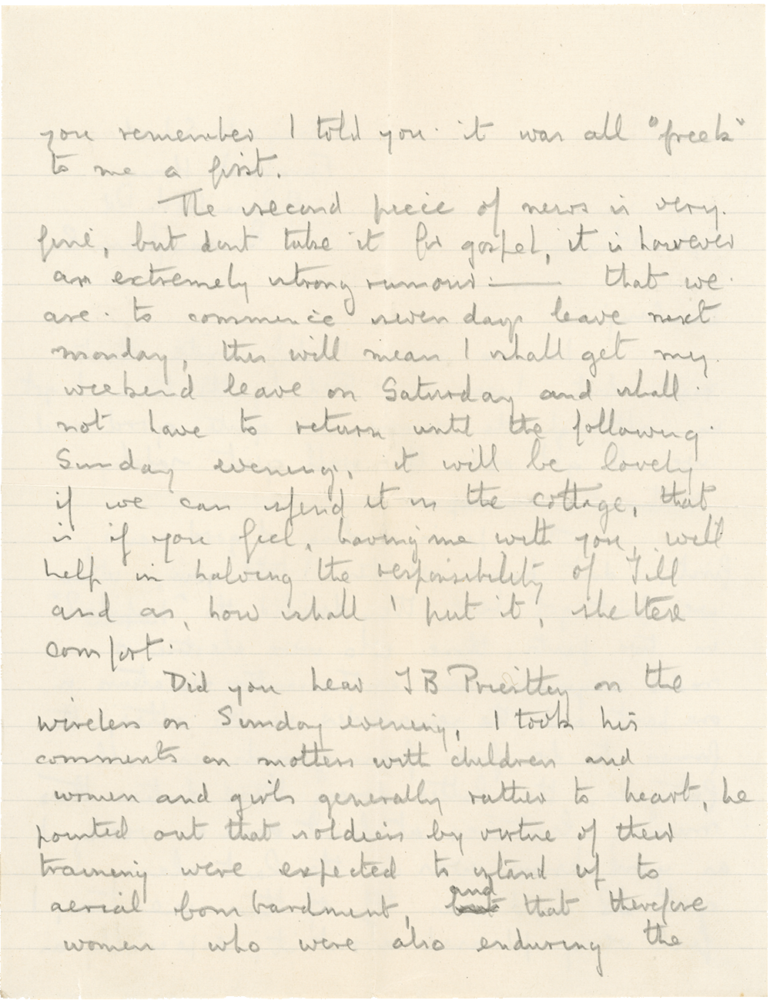 you remember I told you it was all "greek"
to me a first.
The second piece of news is very
fine, but dont take it for gospel, it is however
an extremely strong rumour :— that we
are to commence seven days leave next
monday, this will mean I shall get my
weekend leave on Saturday and shall
not have to return until the following
Sunday evening, it will be lovely
if we can spend it in the cottage, that
is if you feel, having me with you, will
help in halving the responsibility of Jill
and as, how shall I put it,
comfort.
Did you hear J B Priestley on the
wireless on Sunday evening, I took his
comments on mothers with children and
women and girls generally rather to heart, he
pointed out that soldiers by virtue of their
training were expected to stand up to
aerial bombardment, and that therefore
women who were also enduring the